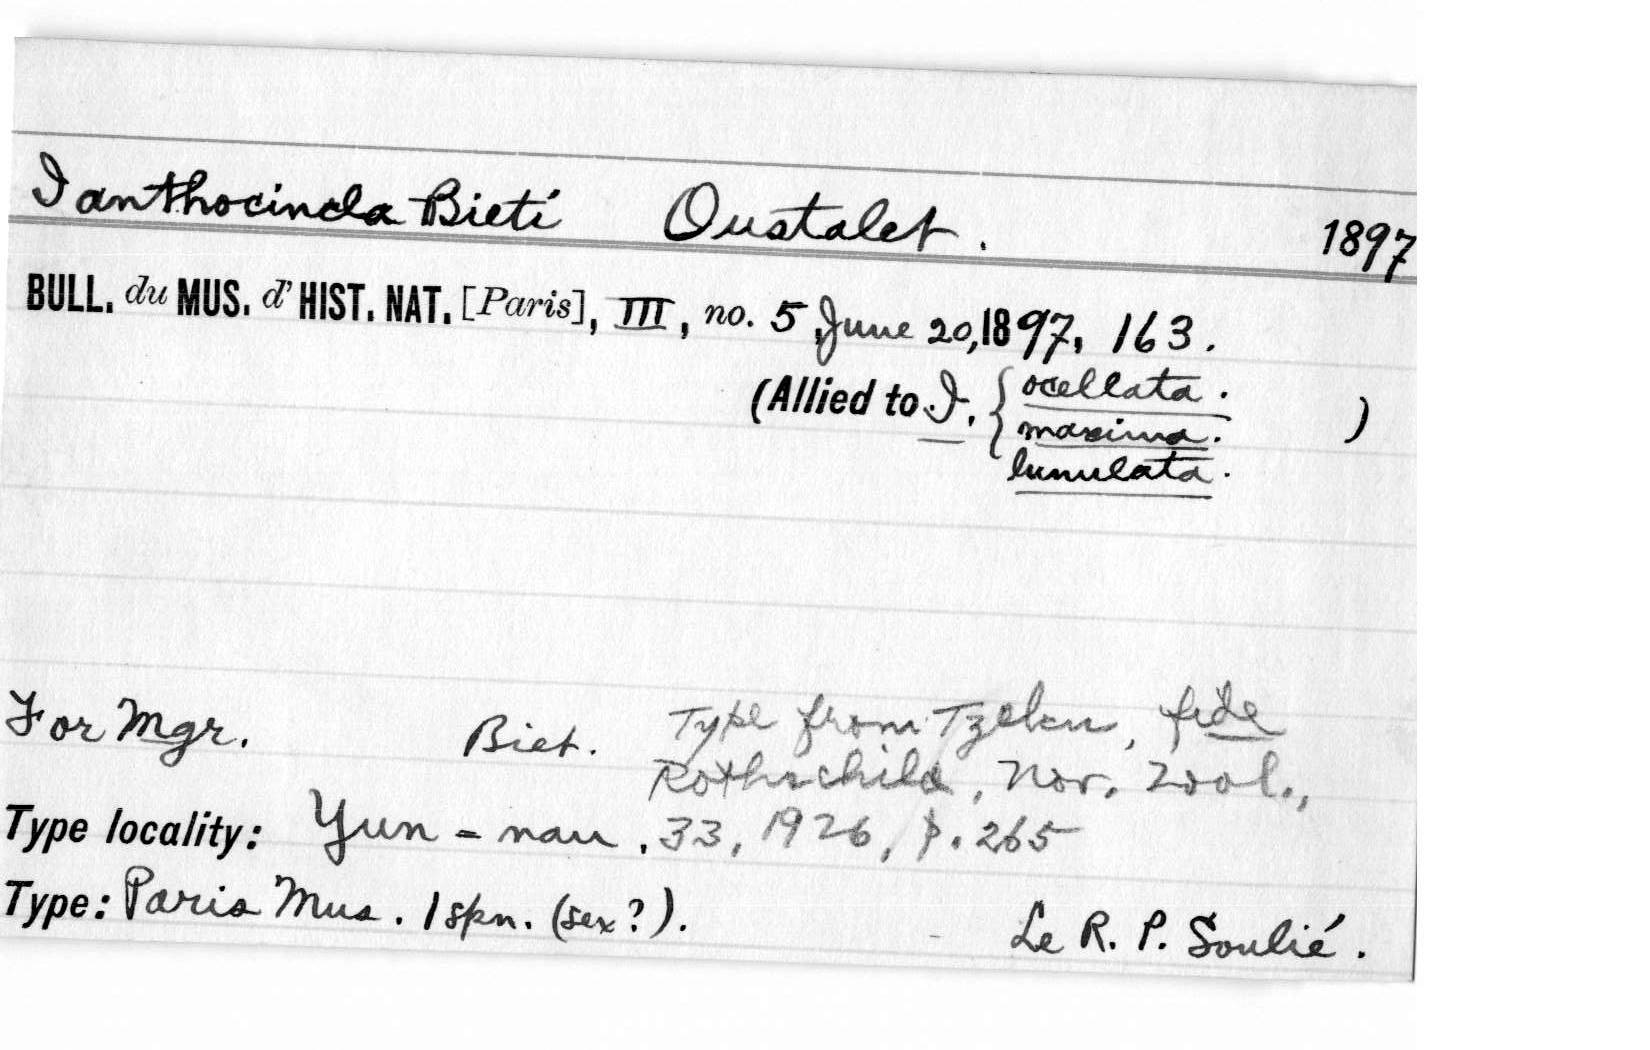 Ianthocincla Bieti Oustalet. 1897
BULL. du MUS. d' HIST. NAT. [Paris], III, no. 5, June 20, 1897, 163.
(Allied to I. { ocellata. )
maxima.
lunulata.
For Mgr. Biet. Type from Tzeku, fide
Rothschild, Nov. Zool.,
Type locality: Yun-nan. 33, 1926, p. 265
Type: Paris Mus. 1 spn. (sex?). Le R. P. Soulié.